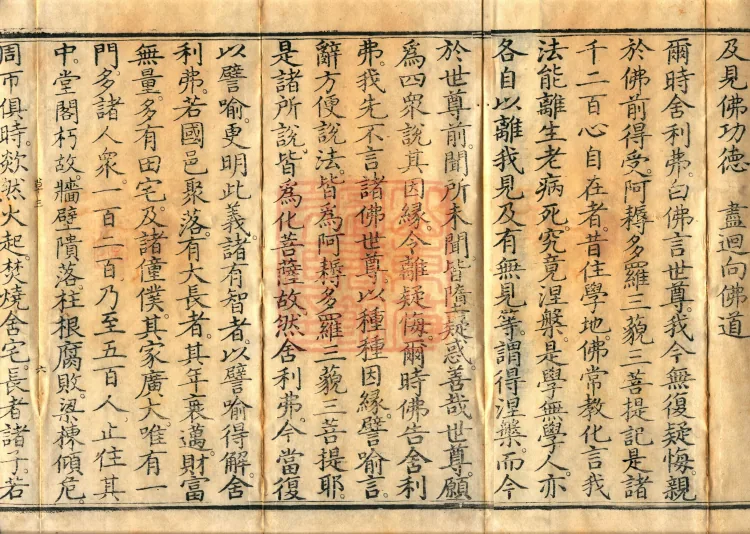 及見佛功德　盡迴向佛道
爾時舍利弗。白佛言世尊。我今無復疑悔。親
於佛前得受。阿耨多羅三藐三菩提記。是諸
千二百心自在者。昔住學地。佛常教化言。我
法能離生老病死。究竟涅槃。是學無學人。亦
各自以離我見。及有無見等。謂得涅槃。而今
於世尊前。聞所未聞。皆墮疑惑。善哉世尊。願
為四眾說其因緣。令離疑悔。爾時佛告舍利
弗。我先不言諸佛世尊。以種種因緣。譬喻言
辭。方便說法。皆為阿耨多羅三藐三菩提耶。
是諸所說。皆為化菩薩故。然舍利弗。今當復
以譬喻。更明此義。諸有智者。以譬喻得解。舍
利弗。若國邑聚落。有大長者。其年衰邁。財富
無量。多有田宅。及諸僮僕。其家廣大。唯有一
門。多諸人眾。一百二百。乃至五百人。止住其
中。堂閣朽故。牆壁隤落。柱根腐敗。梁棟傾危。
草三　六
周帀俱時。欻然火起。焚燒舍宅。長者諸子。若